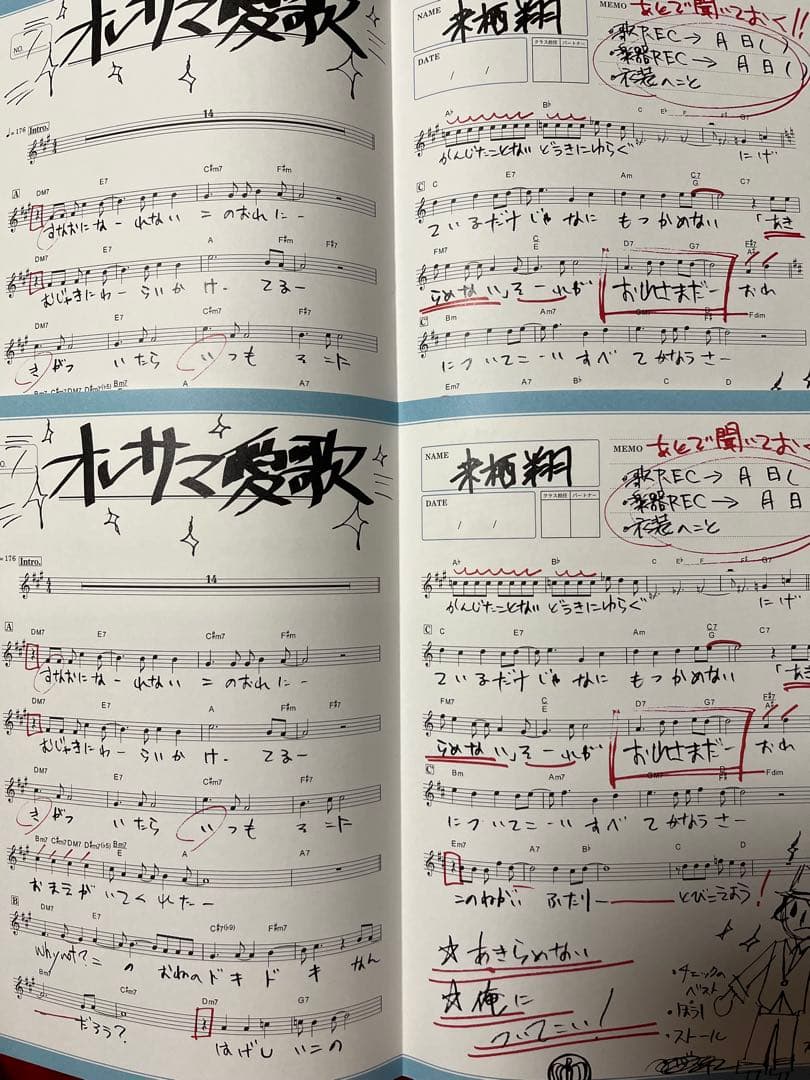 NO.
オレサマ愛歌
♩=176 Intro.
14
A
DM7 E7 C#m7 F#m
すなおになーれない このおれにー
DM7 E7 A F#m F#7
むじゃきにわーらいかけ.てるー
DM7 E7 C#m7 F#7
きがつ いたら いつも
Bm7 C#m7 DM7 D#m7(♭5) Bm7 A A7
NAME 来栖翔
DATE / /
クラス担任 パートナー
MEMO あとで聞いておく!!
・歌REC→ 月 日( )
・楽器REC→ 月 日( )
・衣装のこと
A♭ B♭ C E♭ F G7
かんじたことない どうきにゆらぐ にげ
C
C E7 Am C7 G C7
ているだけじゃなに もつかめない 「あき
FM7 C E D7 G7 E#7
らめない」それが おれさまだー おれ
C'
Bm Am7 Fdim
についてこーいすべてかなうさー
Em7 A7 B♭ C D
NO.
オレサマ愛歌
=176 Intro.
14
A
DM7 E7 C#m7 F#m
すなおになーれない このおれにー
DM7 E7 A F#m F#7
むじゃきにわーらいかけ.てるー
DM7 E7 C#m7 F#7
きがつ いたら いつも
Bm7 C#m7 DM7 D#m7(♭5) Bm7 E A A7
おまえがいてくれたー
B
DM7 E7 C#7(♭9) F#m7
why not? このおれのドキドキ なん
Bm7 C#m7 Dm7 G7
ーだろう? はげしいこの
NAME 来栖翔
DATE / /
クラス担任 パートナー
MEMO あとで聞いておく
・歌REC→ 月 日(
・楽器REC→ 月 日
・衣装のこと
A♭ B♭ C E♭ F G7
かんじたことない どうきにゆらぐ にげ
C
C E7 Am C7 G C7
ているだけじゃなに もつかめない 「あき
FM7 C E D7 G7 E#7
らめない」それが おれさまだー おれ
C'
Bm Am7 Fdim
についてこーいすべてかなうさー
Em7 A7 B♭ C D
このねがい ふたりー とびこえよう!
☆あきらめない
☆俺に
ついてこい!
・チェックの
ベスト
・ぼうし
・ストール